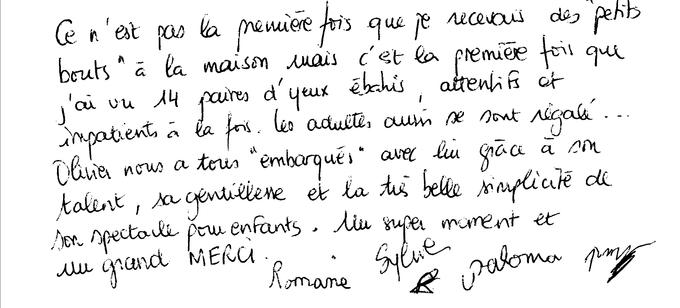 Ce n'est pas la première fois que je recevais des "petits
bouts" à la maison mais c'est la première fois que
j'ai vu 14 paires d'yeux ébahis, attentifs et
impatients à la fois. Les adultes aussi se sont régalé...
Olivier nous a tous "embarqués" avec lui grâce à son
talent, sa gentillesse et la très belle simplicité de
son spectacle pour enfants. Un super moment et
un grand MERCI.
Romane Sylvie
& Paloma